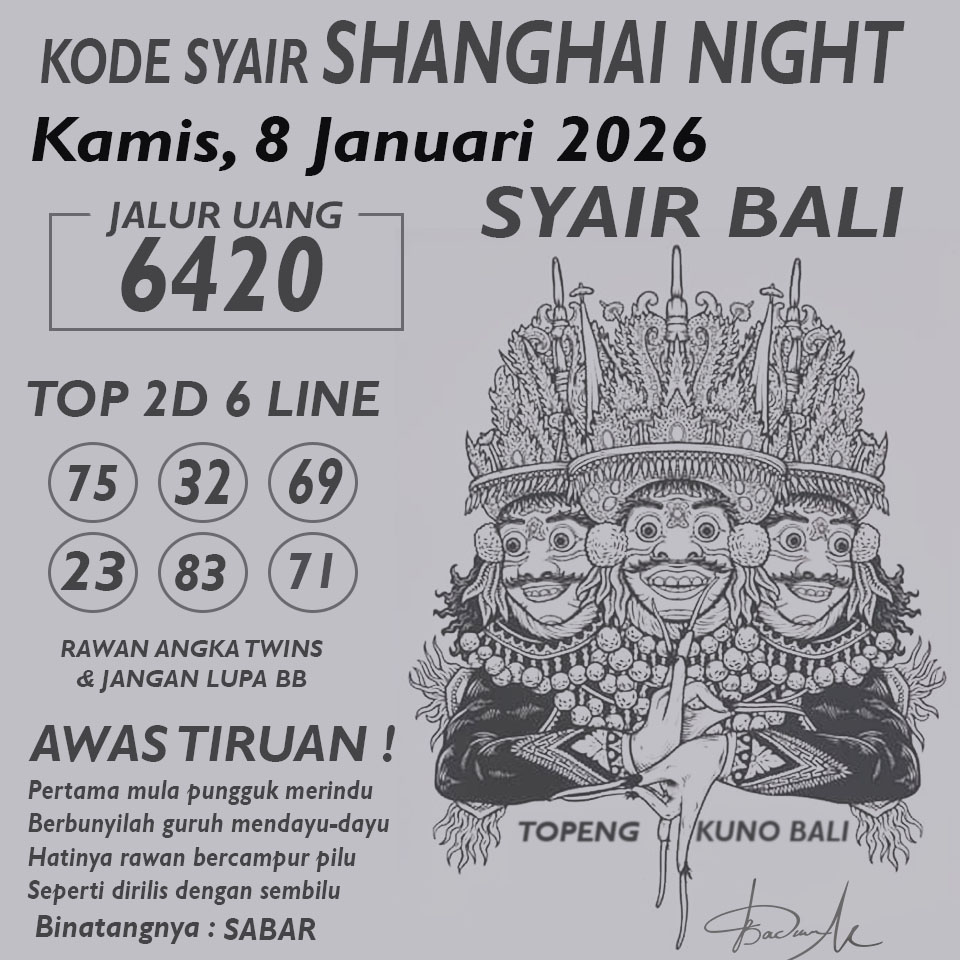 KODE SYAIR SHANGHAI NIGHT
Kamis, 8 Januari 2026
SYAIR BALI
JALUR UANG
6420
TOP 2D 6 LINE
75 32 69
23 83 71
RAWAN ANGKA TWINS
& JANGAN LUPA BB
AWAS TIRUAN !
Pertama mula pungguk merindu
Berbunyilah guruh mendayu-dayu
Hatinya rawan bercampur pilu
Seperti dirilis dengan sembilu
Binatangnya : SABAR
TOPENG KUNO BALI